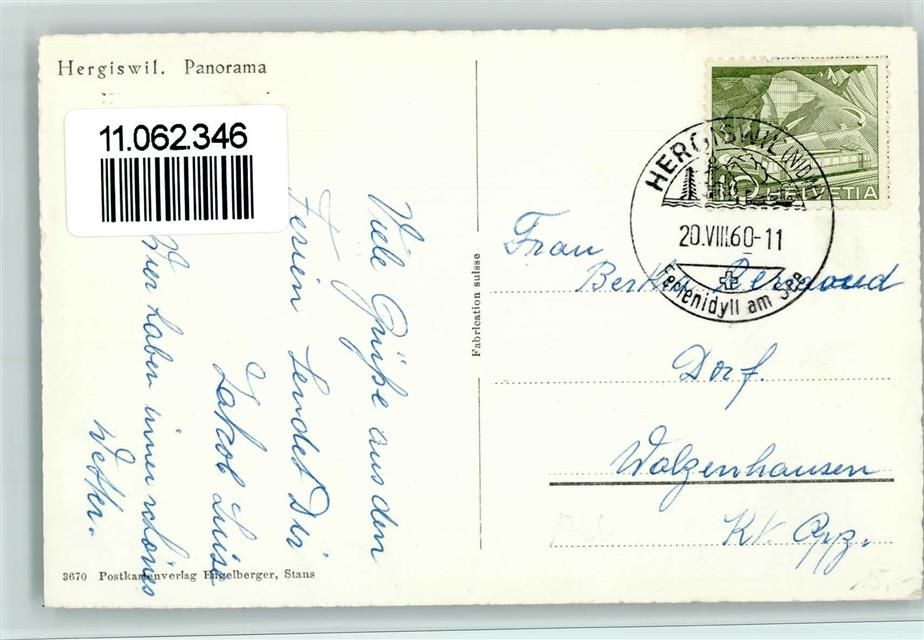 Hergiswil. Panorama
11.062.346
Viele Grüße aus den
Ferien sendet Dir
Jakob Luise
Wier haben immer schönes
Wetter.
3670 Postkartenverlag Engelberger, Stans
Fabrication suisse
HELVETIA
HERGISWIL (NIDW.)
20.VIII.60-11
Ferienidyll am See
Frau
Bertha
Dorf.
Walzenhausen
Kt. App.
15.-